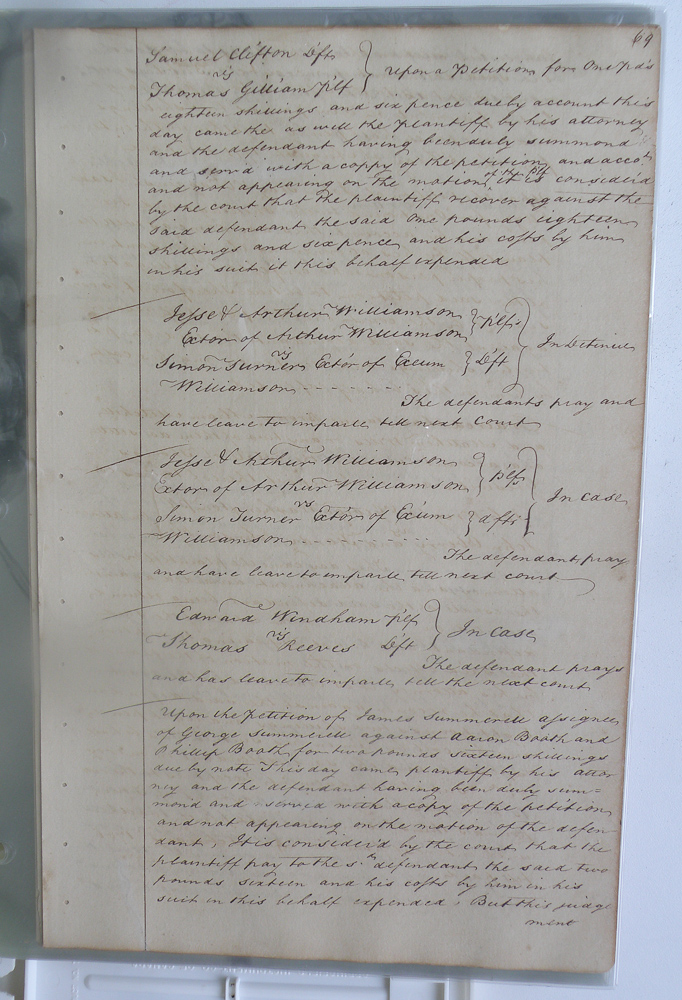 69
Samuel Clifton Dft
vs
Thomas Gilliam Plf } Upon a Petition for One Pds
eighteen shillings and six pence due by account this
day came the as well the plantiff by his attorney
and the defendant having been duly summond
and servd with a coppy of the petition, and acco.t
and not appearing on the motion of the Plf it is consider'd
by the court that the plaintiff recover against the
said defendant the said One Pounds eighteen
shillings and six pence, and his costs by him
in his suit it this behalf expended
Jesse & Arthur Williamson
Extor of Arthur Williamson } Plfs
vs } In Detinue
Simon Turner Extor of Exum } Dft
Williamson - - - - - - -
The defendants pray and
have leave to imparle till next Court
Jesse & Arthur Williamson
Extor of Arthur Williamson } Plfs
vs } In Case
Simon Turner Extor of Exum } dfts
Williamson - - - - - - - -
The defendant pray
and have leave to imparle till next court
Edward Windham Plf
vs } In Case
Thomas Reeves Dft
The defendant prays
and has leave to imparle till the next court
Upon the Petition of James Summerell assignee
of George Summerell against Aaron Booth and
Phillip Booth, for two Pounds sixteen shillings
due by note This day came plantiff by his attor
ney and the defendant having been duly sum=
mond and served with a copy of the petition
and not appearing on the motion of the defen
dant, It is consider'd by the court that the
plaintiff pay to the s.d defendant the said two
Pounds sixteen and his costs by him in his
suit in this behalf expended, But this judge
ment